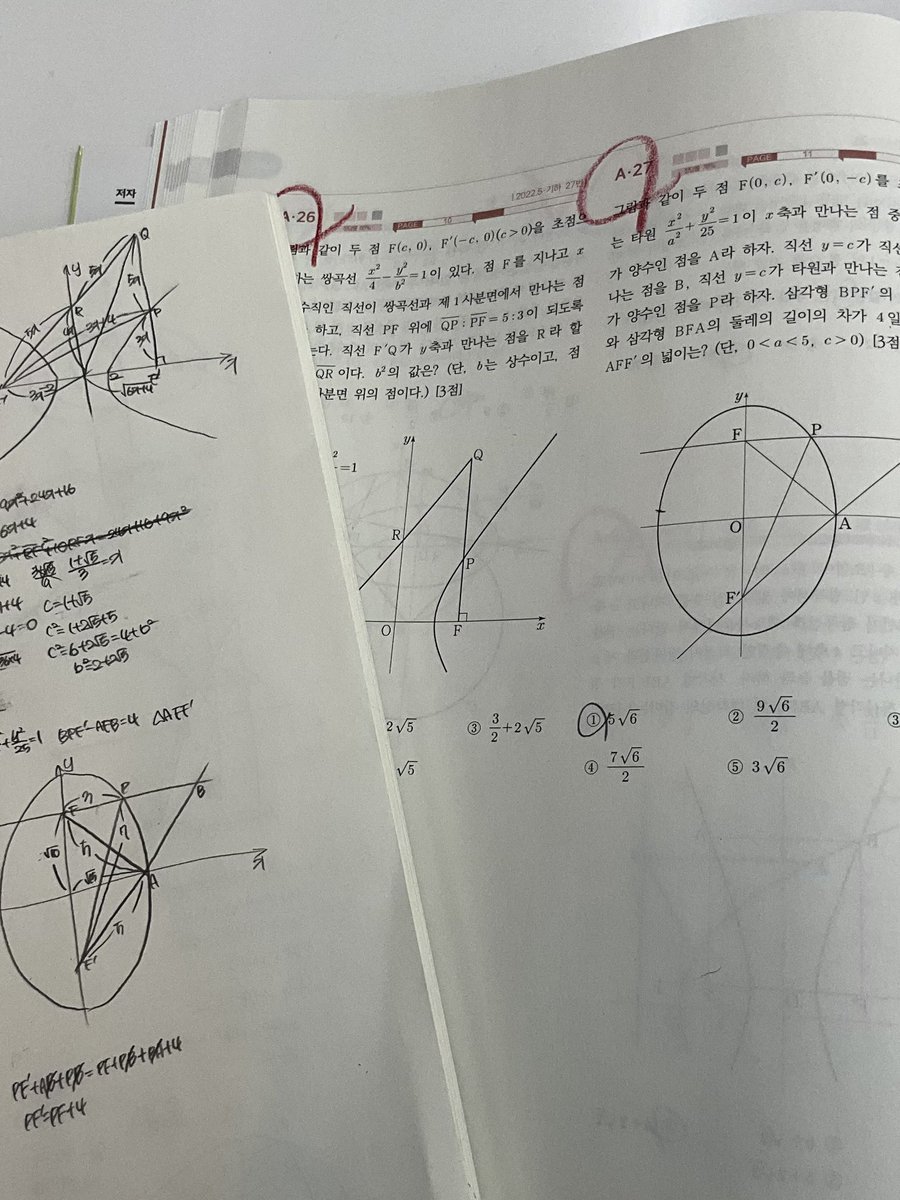 저자
A·26
PAGE 10
(2022.5·기하 27번
같이 두 점 F(c, 0), F′(-c, 0)(c>0)을 초점으
는 쌍곡선 x²/4 - y²/b² =1이 있다. 점 F를 지나고 x
수직인 직선이 쌍곡선과 제1사분면에서 만나는 점
하고, 직선 PF 위에 QP : PF=5 : 3이 되도록
는다. 직선 F′Q가 y축과 만나는 점을 R라 할
QR이다. b²의 값은? (단, b는 상수이고, 점
사분면 위의 점이다.) [3점]
=1
y
Q
R
P
O
F
x
2√5
③ 3/2+2√5
√5
A·27
PAGE 11
그림과 같이 두 점 F(0, c), F′(0, -c)를
는 타원 x²/a² + y²/25 =1이 x축과 만나는 점 중
가 양수인 점을 A라 하자. 직선 y=c가 직선
나는 점을 B, 직선 y=c가 타원과 만나는
가 양수인 점을 P라 하자. 삼각형 BPF′의
와 삼각형 BFA의 둘레의 길이의 차가 4일
AFF′의 넓이는? (단, 0<a<5, c>0) [3점
y
F
P
O
A
F′
① 5√6
② 9√6/2
③
④ 7√6/2
⑤ 3√6
Q
y
R
P
5x
3x+4
3x
√6x+4
9x²+24x+16
6x+4
1+√5/3=x
c=1+√5
c²=1+2√5+5
c²=6+2√5=4+b²
b²=2+2√5
BPF′-AFB=4 △AFF′
y
F
P
B
A
F′
x
PF′+AB+PB=PF+PB+BA+4
PF′=PF+4